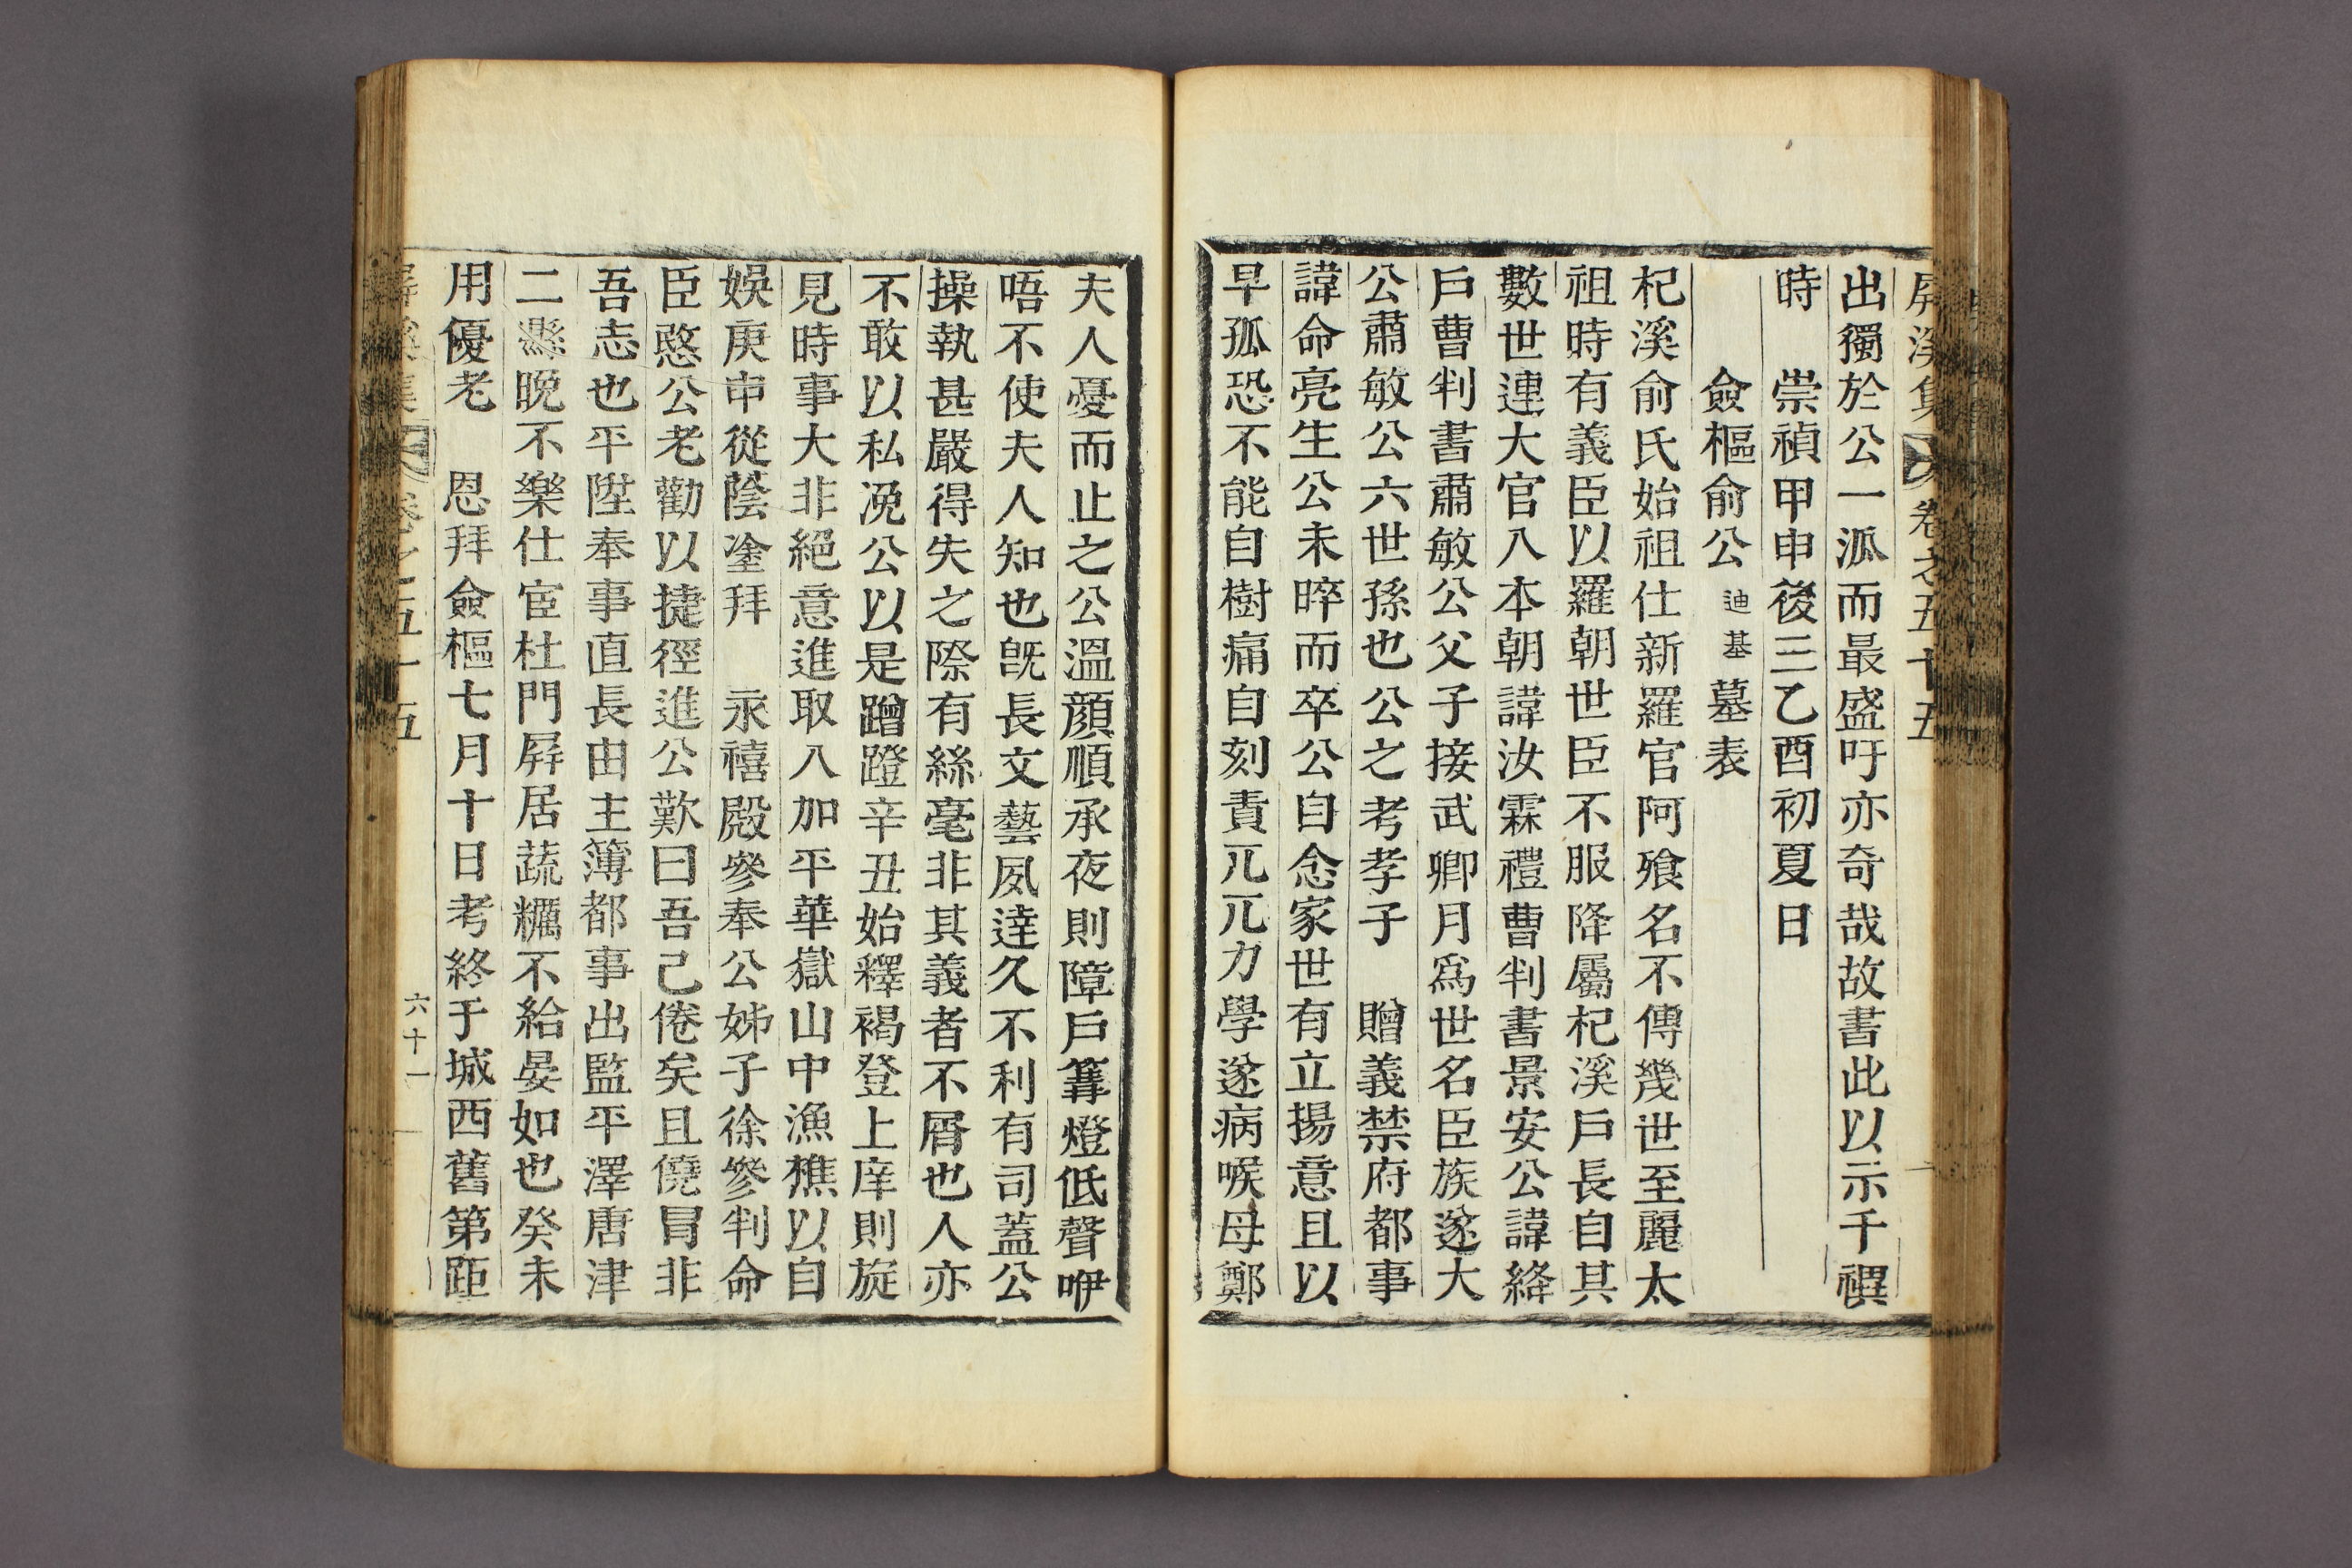 屛溪集
卷之五十五
出獨於公一派而最盛吁亦奇哉故書此以示千禩
時 崇禎甲申後三乙酉初夏日
僉樞俞公迪基墓表
杞溪俞氏始祖仕新羅官阿飱名不傳幾世至麗太
祖時有義臣以羅朝世臣不服降屬杞溪戶長自其
數世連大官入本朝諱汝霖禮曹判書景安公諱絳
戶曹判書肅敏公父子接武卿月爲世名臣族遂大
公肅敏公六世孫也公之考孝子 贈義禁府都事
諱命亮生公未晬而卒公自念家世有立揚意且以
早孤恐不能自樹痛自刻責兀兀力學遂病喉母鄭
夫人憂而止之公溫顔順承夜則障戶篝燈低聲咿
唔不使夫人知也旣長文藝夙達久不利有司蓋公
操執甚嚴得失之際有絲毫非其義者不屑也人亦
不敢以私浼公以是蹭蹬辛丑始釋褐登上庠則旋
見時事大非絕意進取入加平華嶽山中漁樵以自
娛庚申從蔭塗拜 永禧殿參奉公姊子徐參判命
臣愍公老勸以捷徑進公歎曰吾已倦矣且僥冒非
吾志也平陞奉事直長由主簿都事出監平澤唐津
二縣晩不樂仕宦杜門屛居蔬糲不給晏如也癸未
用優老 恩拜僉樞七月十日考終于城西舊第距
屛溪集
卷之五十五
六十一